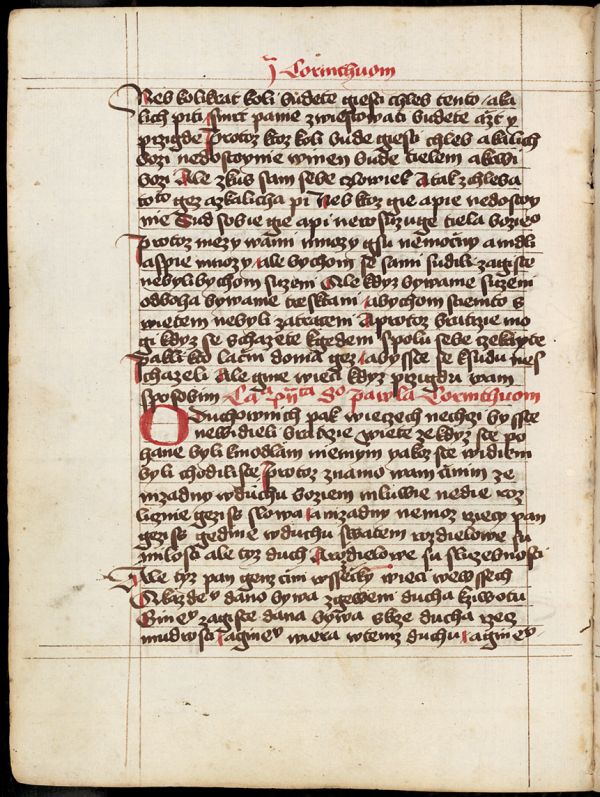 j Corinthuom
Neb kolikrat koli budete giesti chleb tento a ka
lich piti smrt panie zwiestowati budete azt y
przigde Protoz ktoz koli bude giesti chleb a kalich
bozi nedostoynie winen bude tielem a krwi
bozi Ale zkus sam sebe czlowiek A tak z chleba
toto gez a z kalicha pi Neb ktoz gie a pie nedostoy
nie Sud sobie gie a pi nerozsuzuge tiela bozieo
Protoz mezy wami mnozy gsu nemocny a mdli
a spie mnozy Ale bychom se sami sudili zagiste
nebyli bychom suzeni Ale kdyz bywame suzeni
od boha bywame tresktani abychom s tiemto s
wietem nebyli zatraceni A protoz bratrzie mo
gi kdyz se schazete k gedeni spolu sebe czekayte
Pakli kto lacni doma gez abysste se k sudu nes
chazeli Ale gine wieci kdyz przigdu wam
sposobim Ca. So pawla Corinthuom
O duchownich pak wieczech nechzi bysste
newidieli bratrzie Wiete ze kdyz ste po
hane byli k modlam niemym yakoz ste wedeni
byli chodili ste Protoz znamo wam cinim ze
nizadny w duchu boziem mluwie nedie roz
licznie gezissowi slowa a nizadny nemoz rzecy pan
gezis gedine w duchu swatem Rozdielowe su
milosti ale tyz duch A rozdielowe su sluzebnosti
Ale tyz pan genz cini wssecky wieci we wssech
A kazdey dano bywa zgeweni ducha k ziwotu
Giney zagiste dana bywa skze ducha rzecz
mudrosti a giney wiera w temz duchu a giney